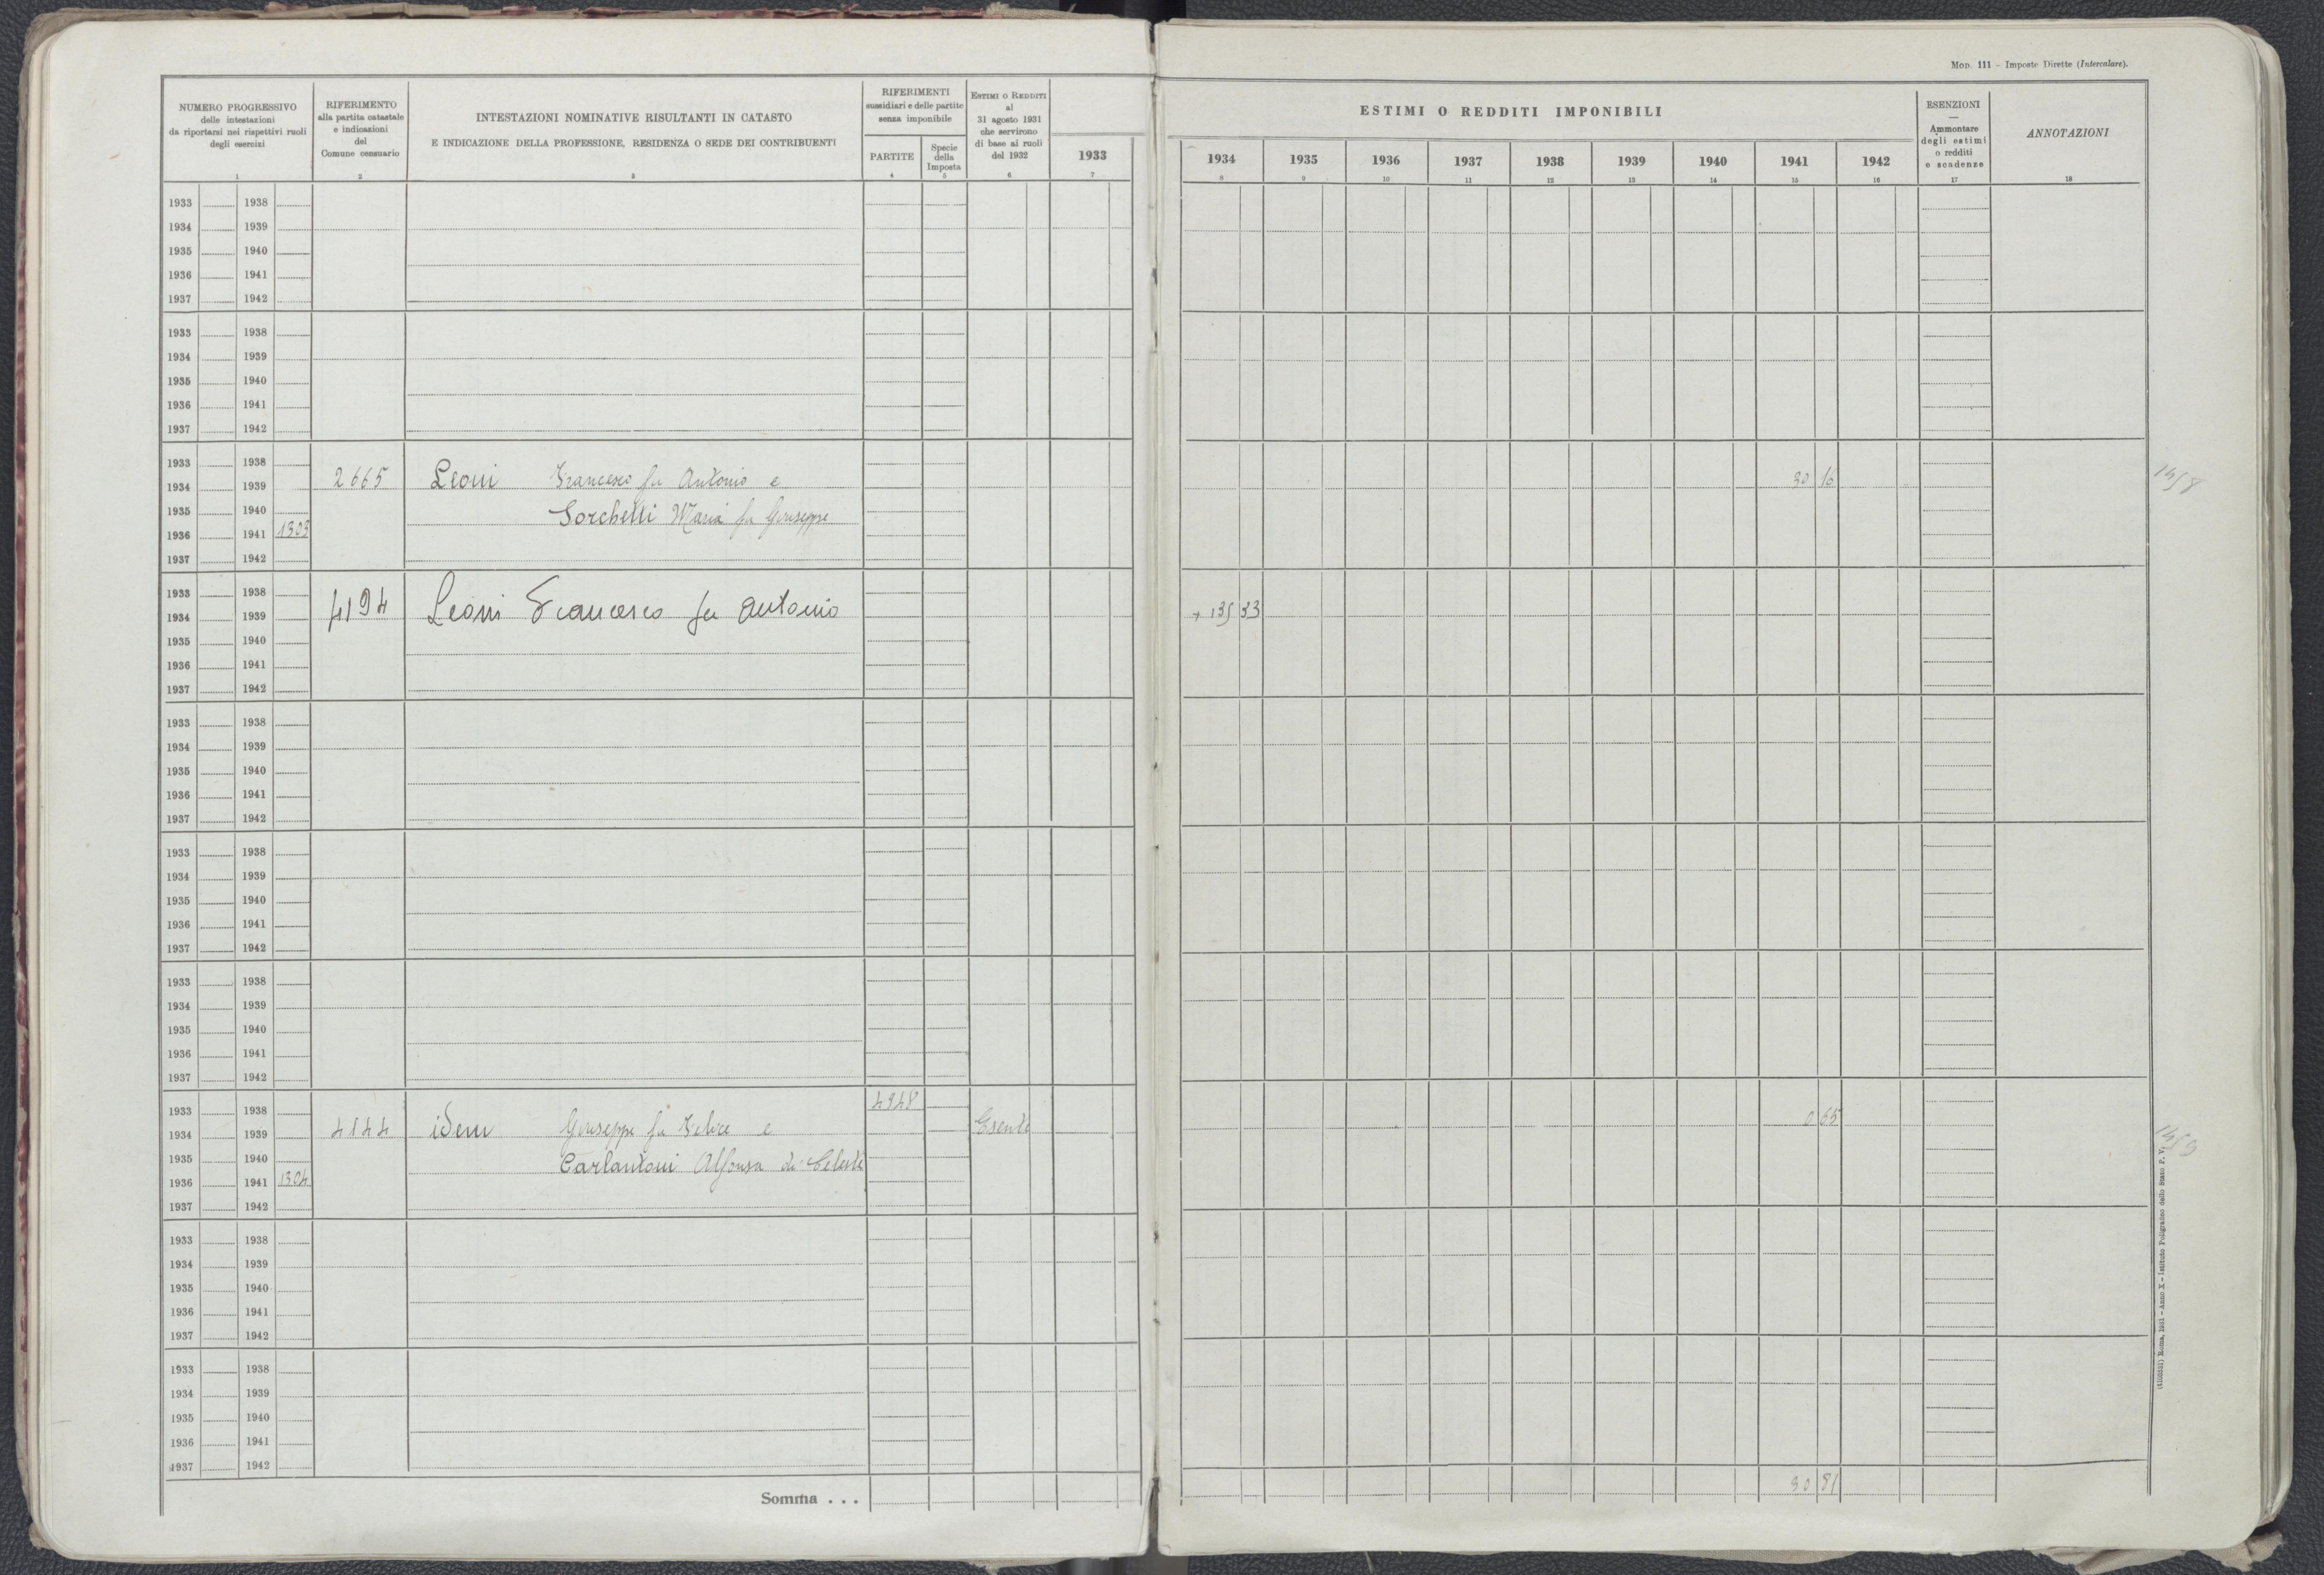 MOD. 111 - Imposte Dirette (Intercalare).
NUMERO PROGRESSIVO
delle intestazioni
da riportarsi nei rispettivi ruoli
degli esercizi
1
RIFERIMENTO
alla partita catastale
e indicazioni
del
Comune censuario
2
INTESTAZIONI NOMINATIVE RISULTANTI IN CATASTO
E INDICAZIONE DELLA PROFESSIONE, RESIDENZA O SEDE DEI CONTRIBUENTI
3
RIFERIMENTI
sussidiari e delle partite
senza imponibile
PARTITE
4
Specie
della
Imposta
5
ESTIMI O REDDITI
al
31 agosto 1931
che servirono
di base ai ruoli
del 1932
6
1933
7
ESTIMI O REDDITI IMPONIBILI
1934 1935 1936 1937 1938 1939 1940 1941 1942
8 9 10 11 12 13 14 15 16
ESENZIONI
—
Ammontare
degli estimi
o redditi
e scadenze
17
ANNOTAZIONI
18
1933 1938
1934 1939
1935 1940
1936 1941
1937 1942
1933 1938
1934 1939
1935 1940
1936 1941
1937 1942
1933 1938
1934 1939 2665 Leoni Francesco fu Antonio e 30 16
1935 1940 Sorchetti Maria fu Giuseppe
1936 1941 1303
1937 1942
1933 1938
1934 1939 4194 Leoni Francesco fu Antonio + 135 33
1935 1940
1936 1941
1937 1942
1933 1938
1934 1939
1935 1940
1936 1941
1937 1942
1933 1938
1934 1939
1935 1940
1936 1941
1937 1942
1933 1938
1934 1939
1935 1940
1936 1941
1937 1942
1933 1938 4948
1934 1939 4144 idem Giuseppe fu Felice e Esente 0 65
1935 1940 Carlantoni Alfonsa di Celeste
1936 1941 1304
1937 1942
1933 1938
1934 1939
1935 1940
1936 1941
1937 1942
1933 1938
1934 1939
1935 1940
1936 1941
1937 1942
Somma . . . 30 81
1458
1459
Roma, 1931 - Anno X - Istituto Poligrafico dello Stato P. V.